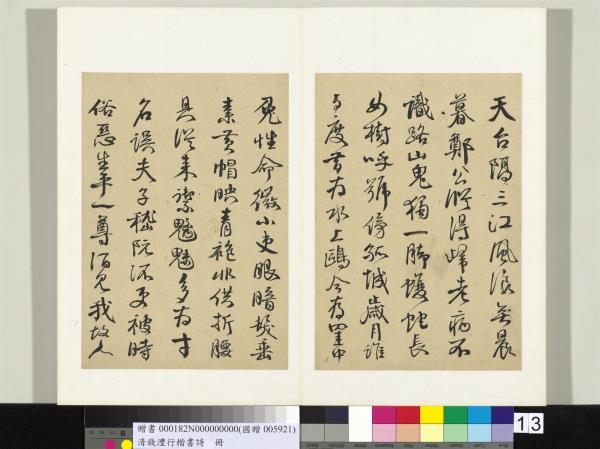 天台隔三江風浪無晨
暮鄭公縱得歸老病不
識路山鬼獨一脚蝮蛇長
如樹呼號傍孤城歲月誰
與度昔為水上鷗今為罝中
兔性命微小吏眼暗髮垂
素黃帽映青袍非供折腰
具從來禦魑魅多為才
名誤夫子嵇阮流更被時
俗惡生平一尊酒見我故人
贈書 000182N000000000(國贈 005921)
清錢灃行楷書詩 冊
13